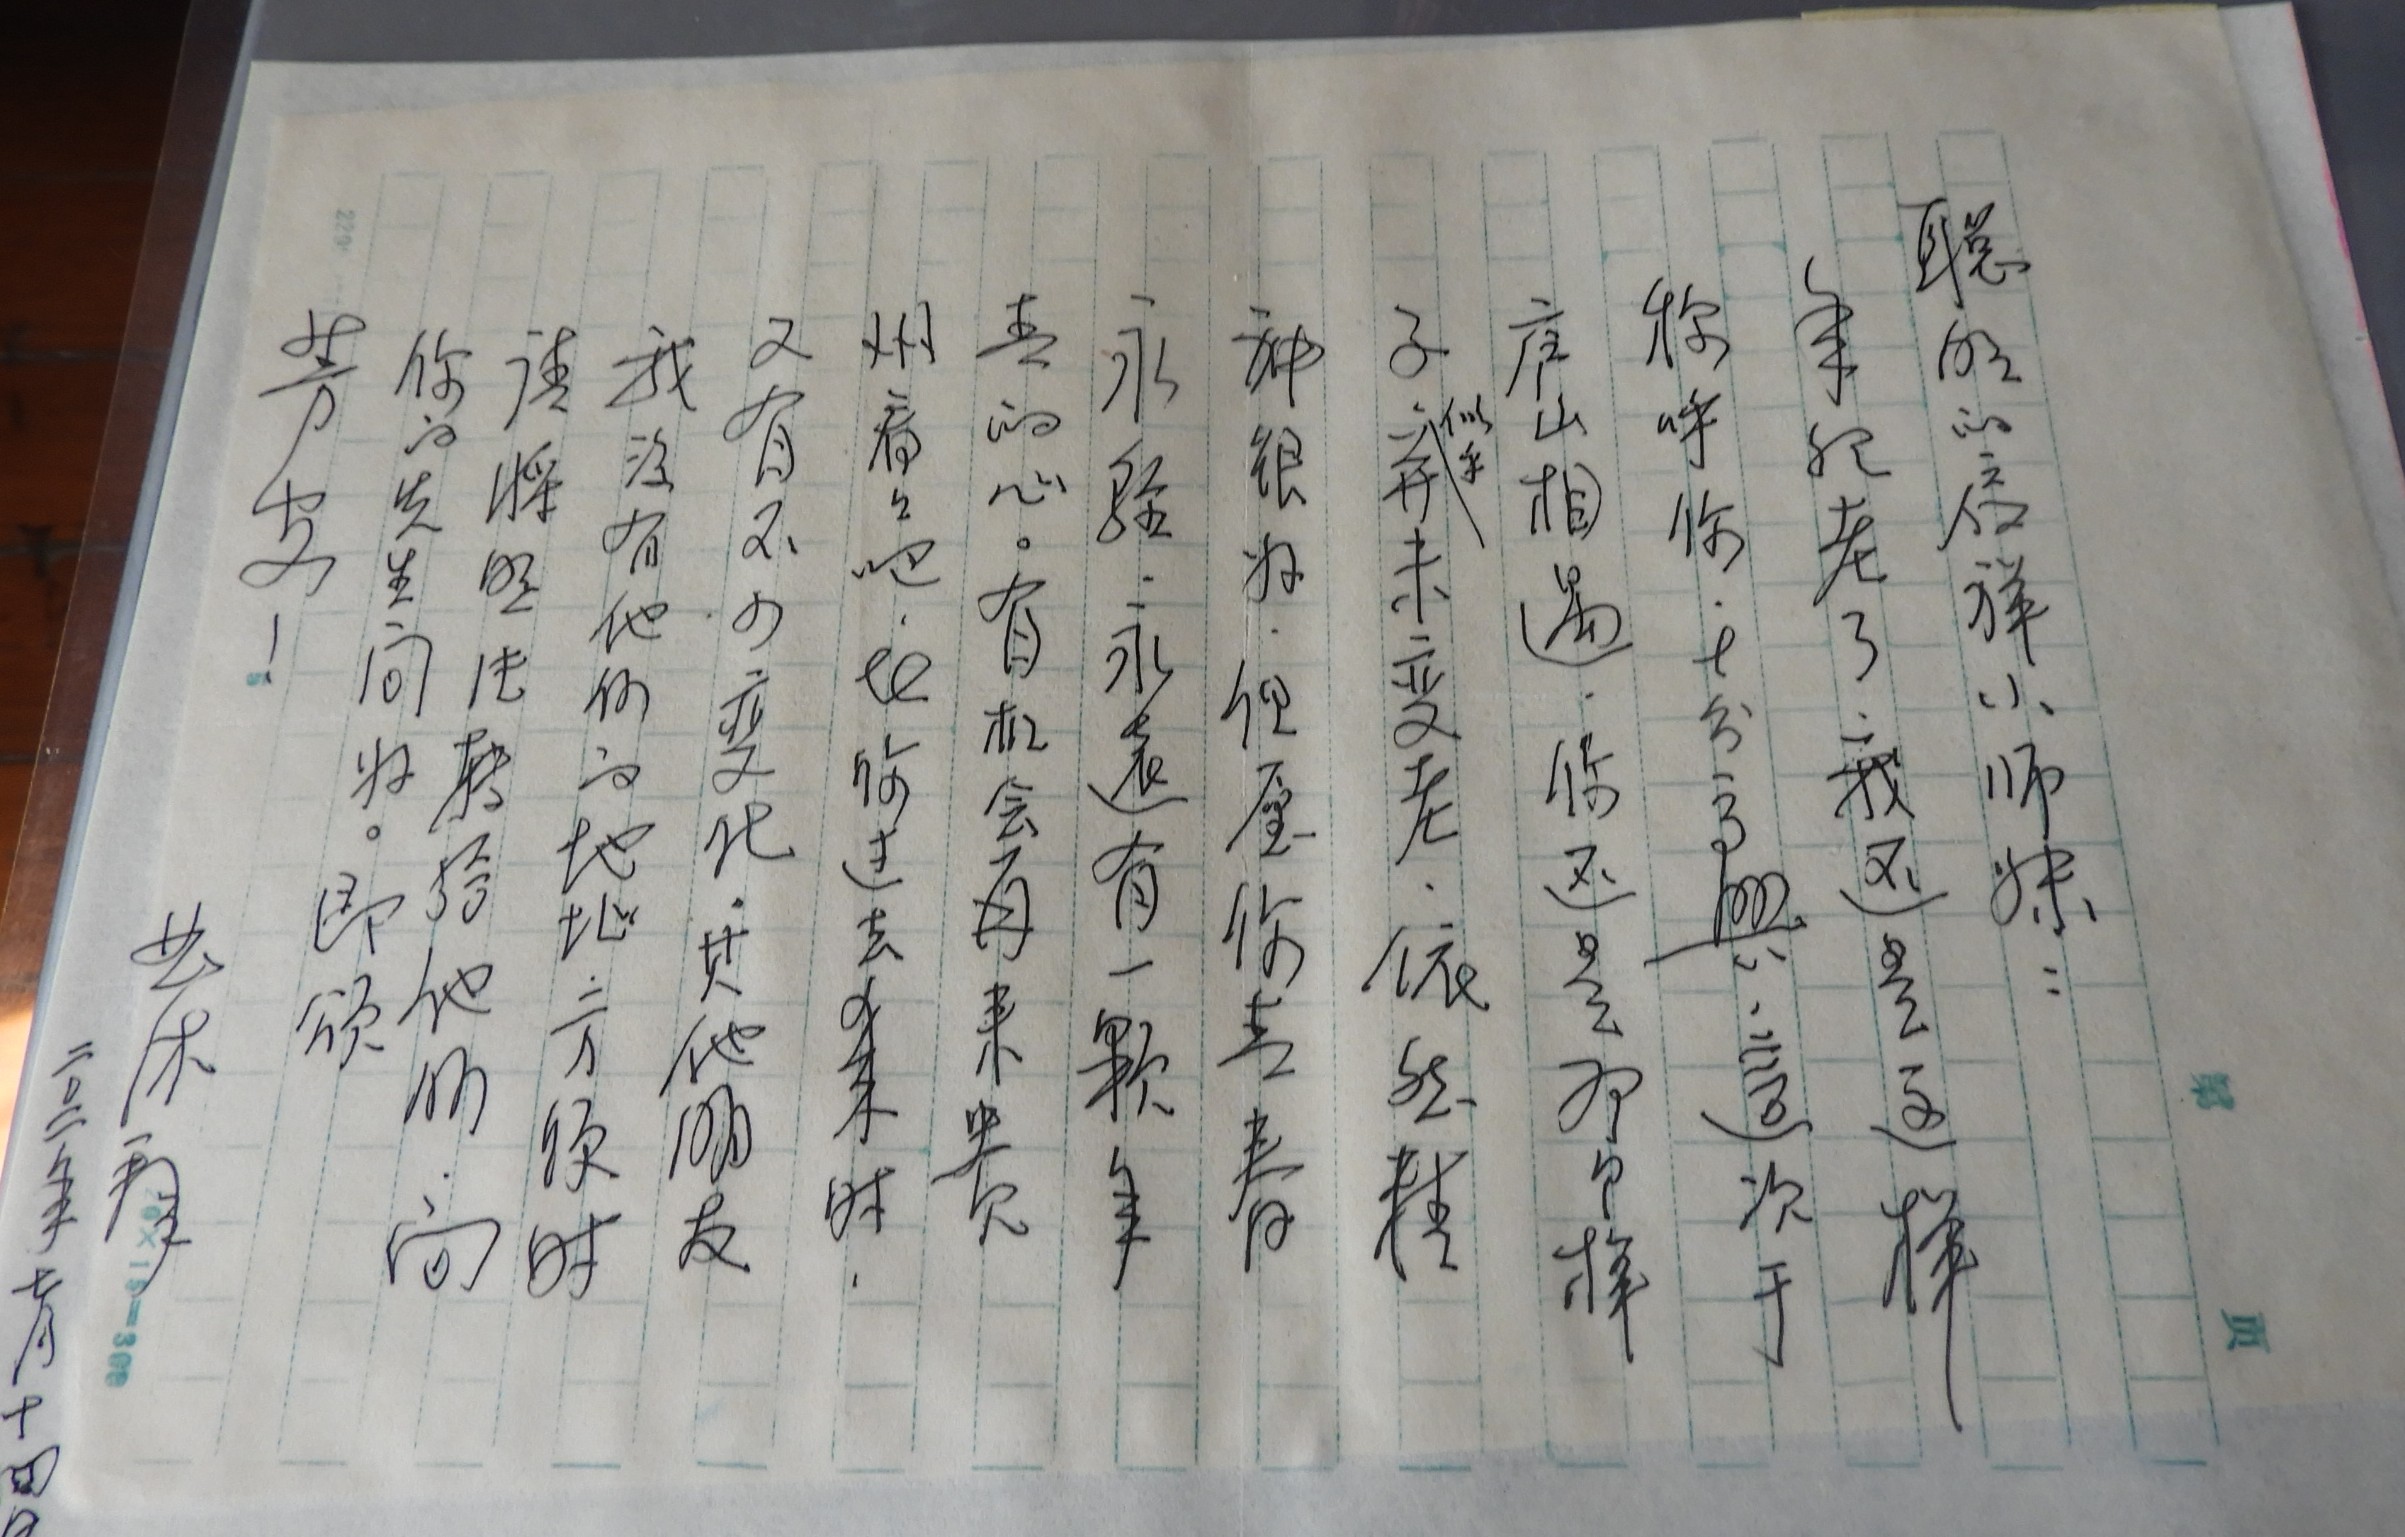 聪明的俊祥小师妹：
年纪老了，我还是这样
称呼你，十分高兴，这次于
庐山相遇，你还是那个样
子，似乎并未变老，依然精
神很好，但愿你青春
永驻，永远有一颗年
青的心。有机会再来贵
州看看吧，比你过去来时，
又有不少变化，其他朋友
我没有他们的地址，方便时
请将照片转给他们，问
你的先生问好。即颂
芳安！
二〇一二年七月十四日
229
20×15=300
第
页